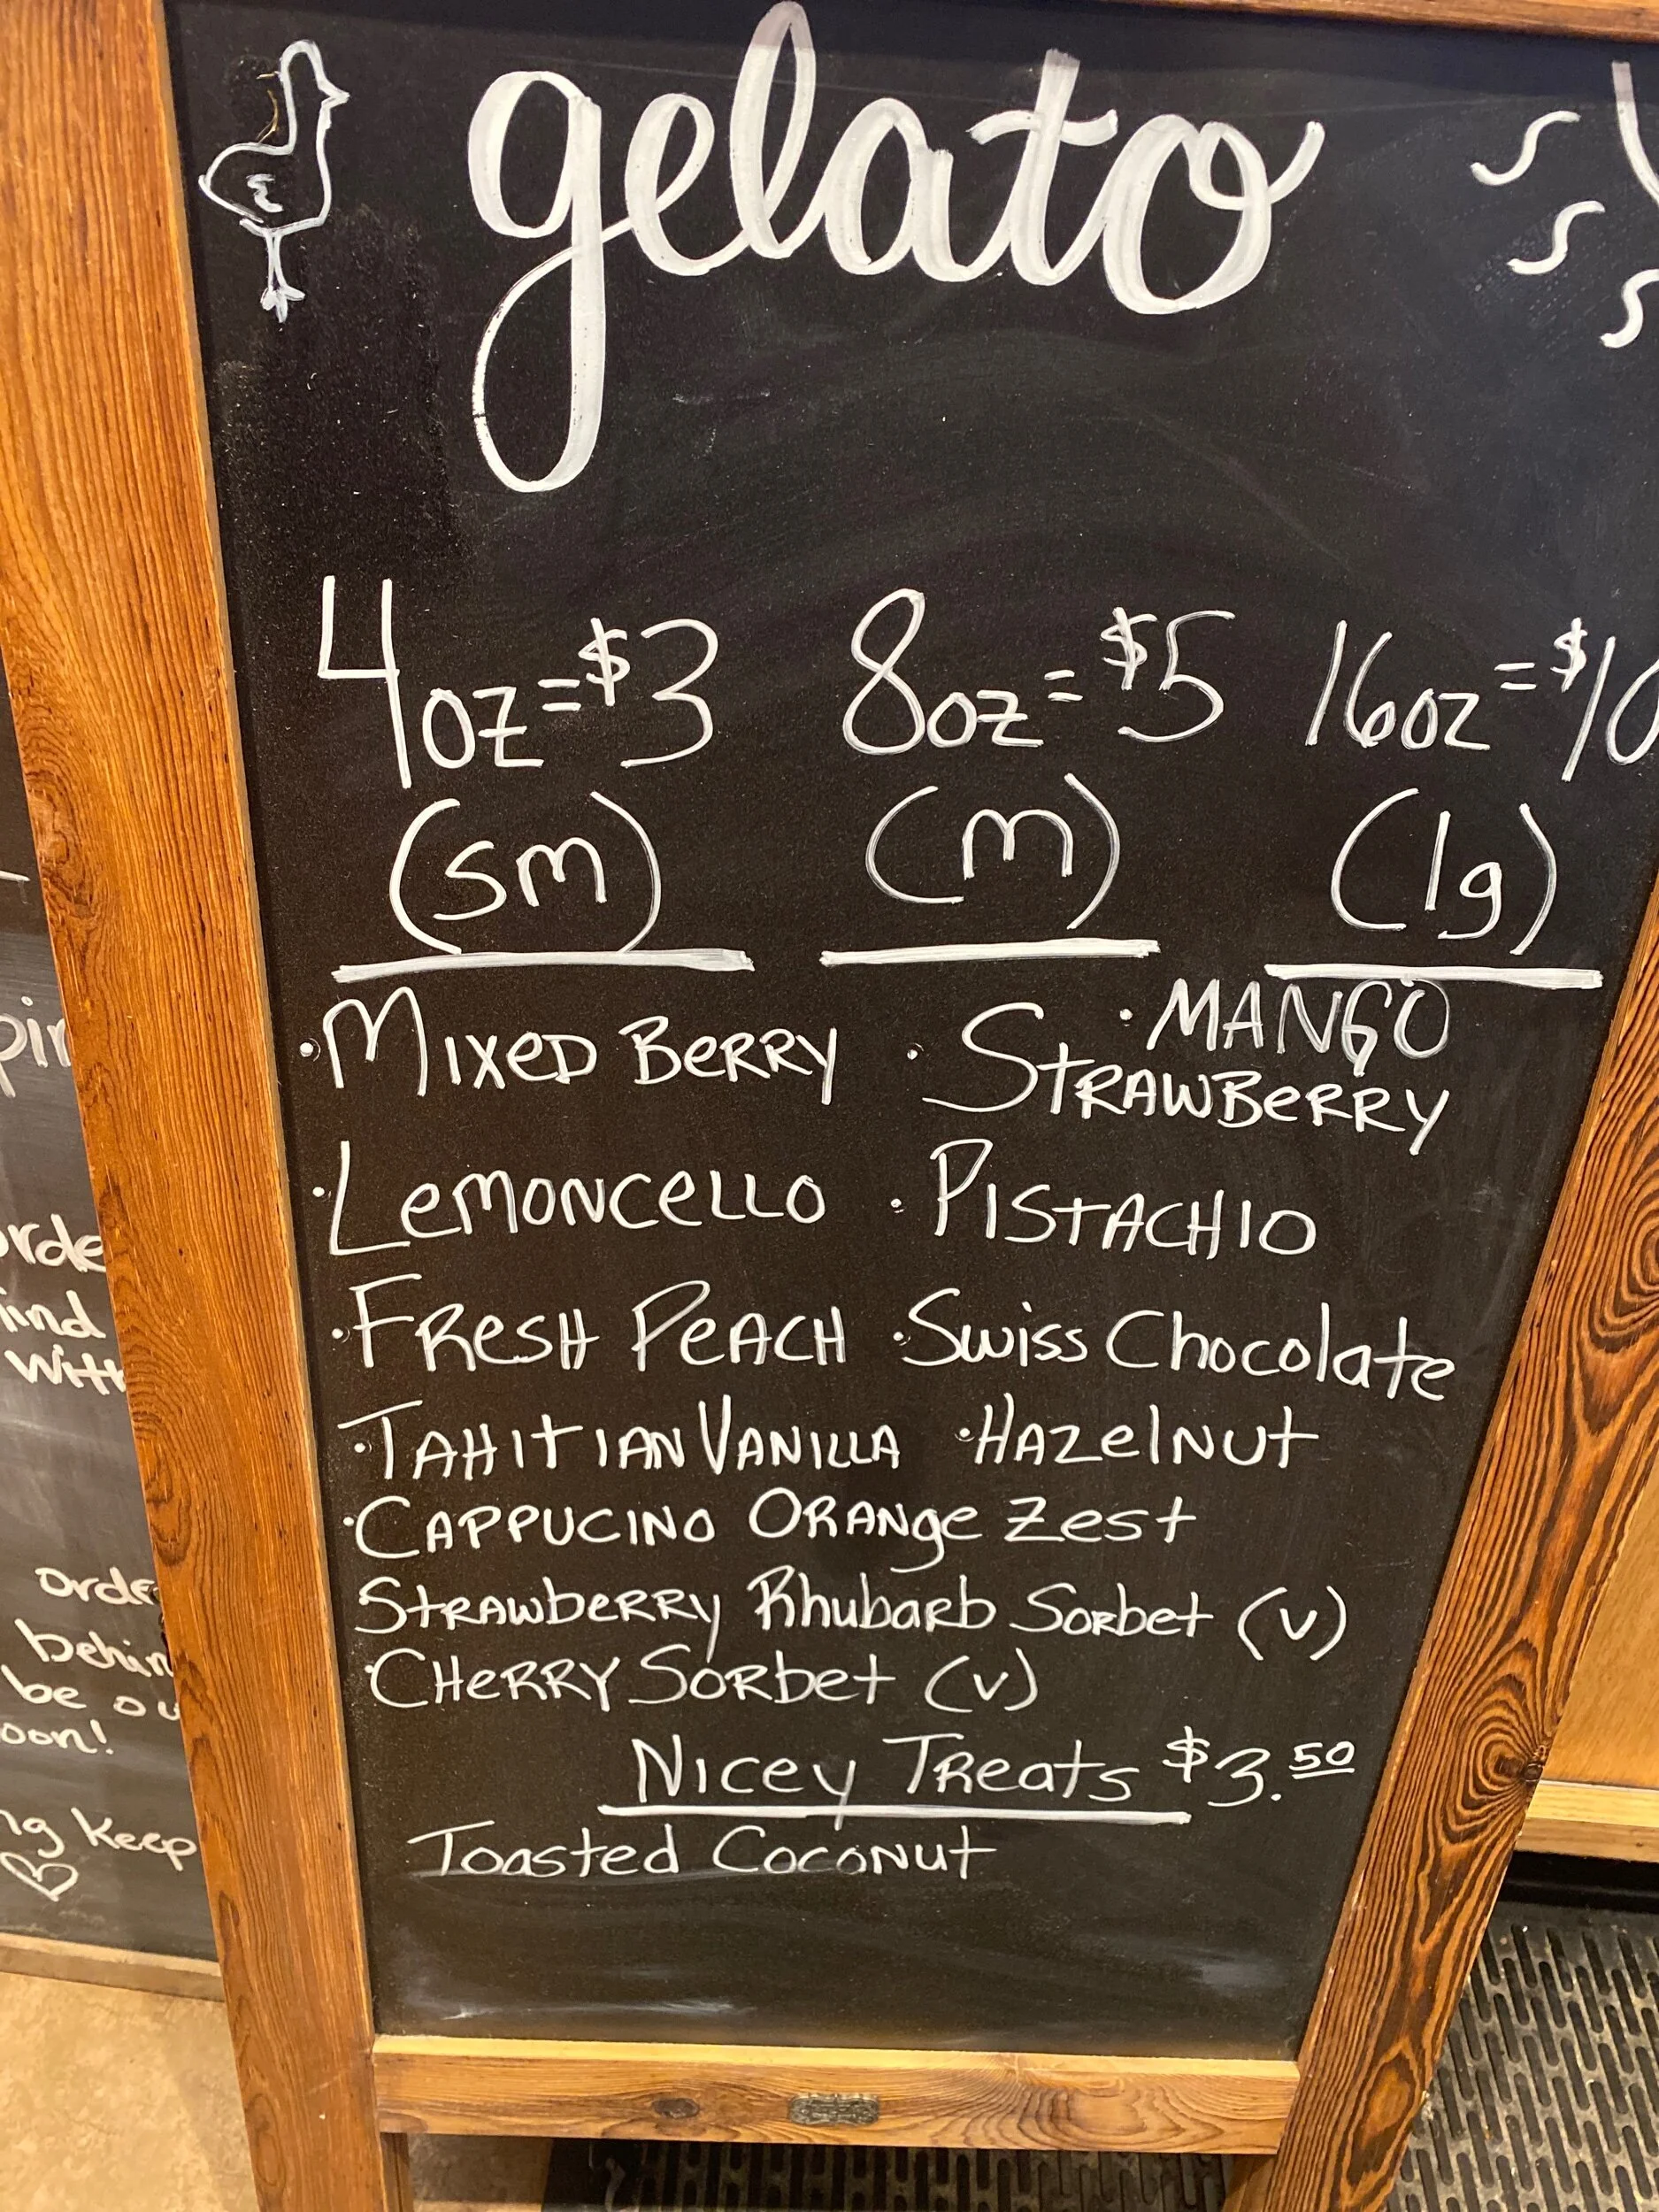 gelato
4oz=$3 8oz=$5 16oz=$10
(sm) (m) (lg)
· MANGO
· MIXED BERRY · STRAWBERRY
· LEMONCELLO · PISTACHIO
· FRESH PEACH · Swiss Chocolate
· TAHITIAN VANILLA · HAZelNUt
· CAPPUCINO ORANge Zest
StRAWbeRRY Rhubarb Sorbet (v)
· CHeRRY Sorbet (v)
Nicey Treats $3.50
Toasted Coconut
with
behin
be ou
oon!
ng keep